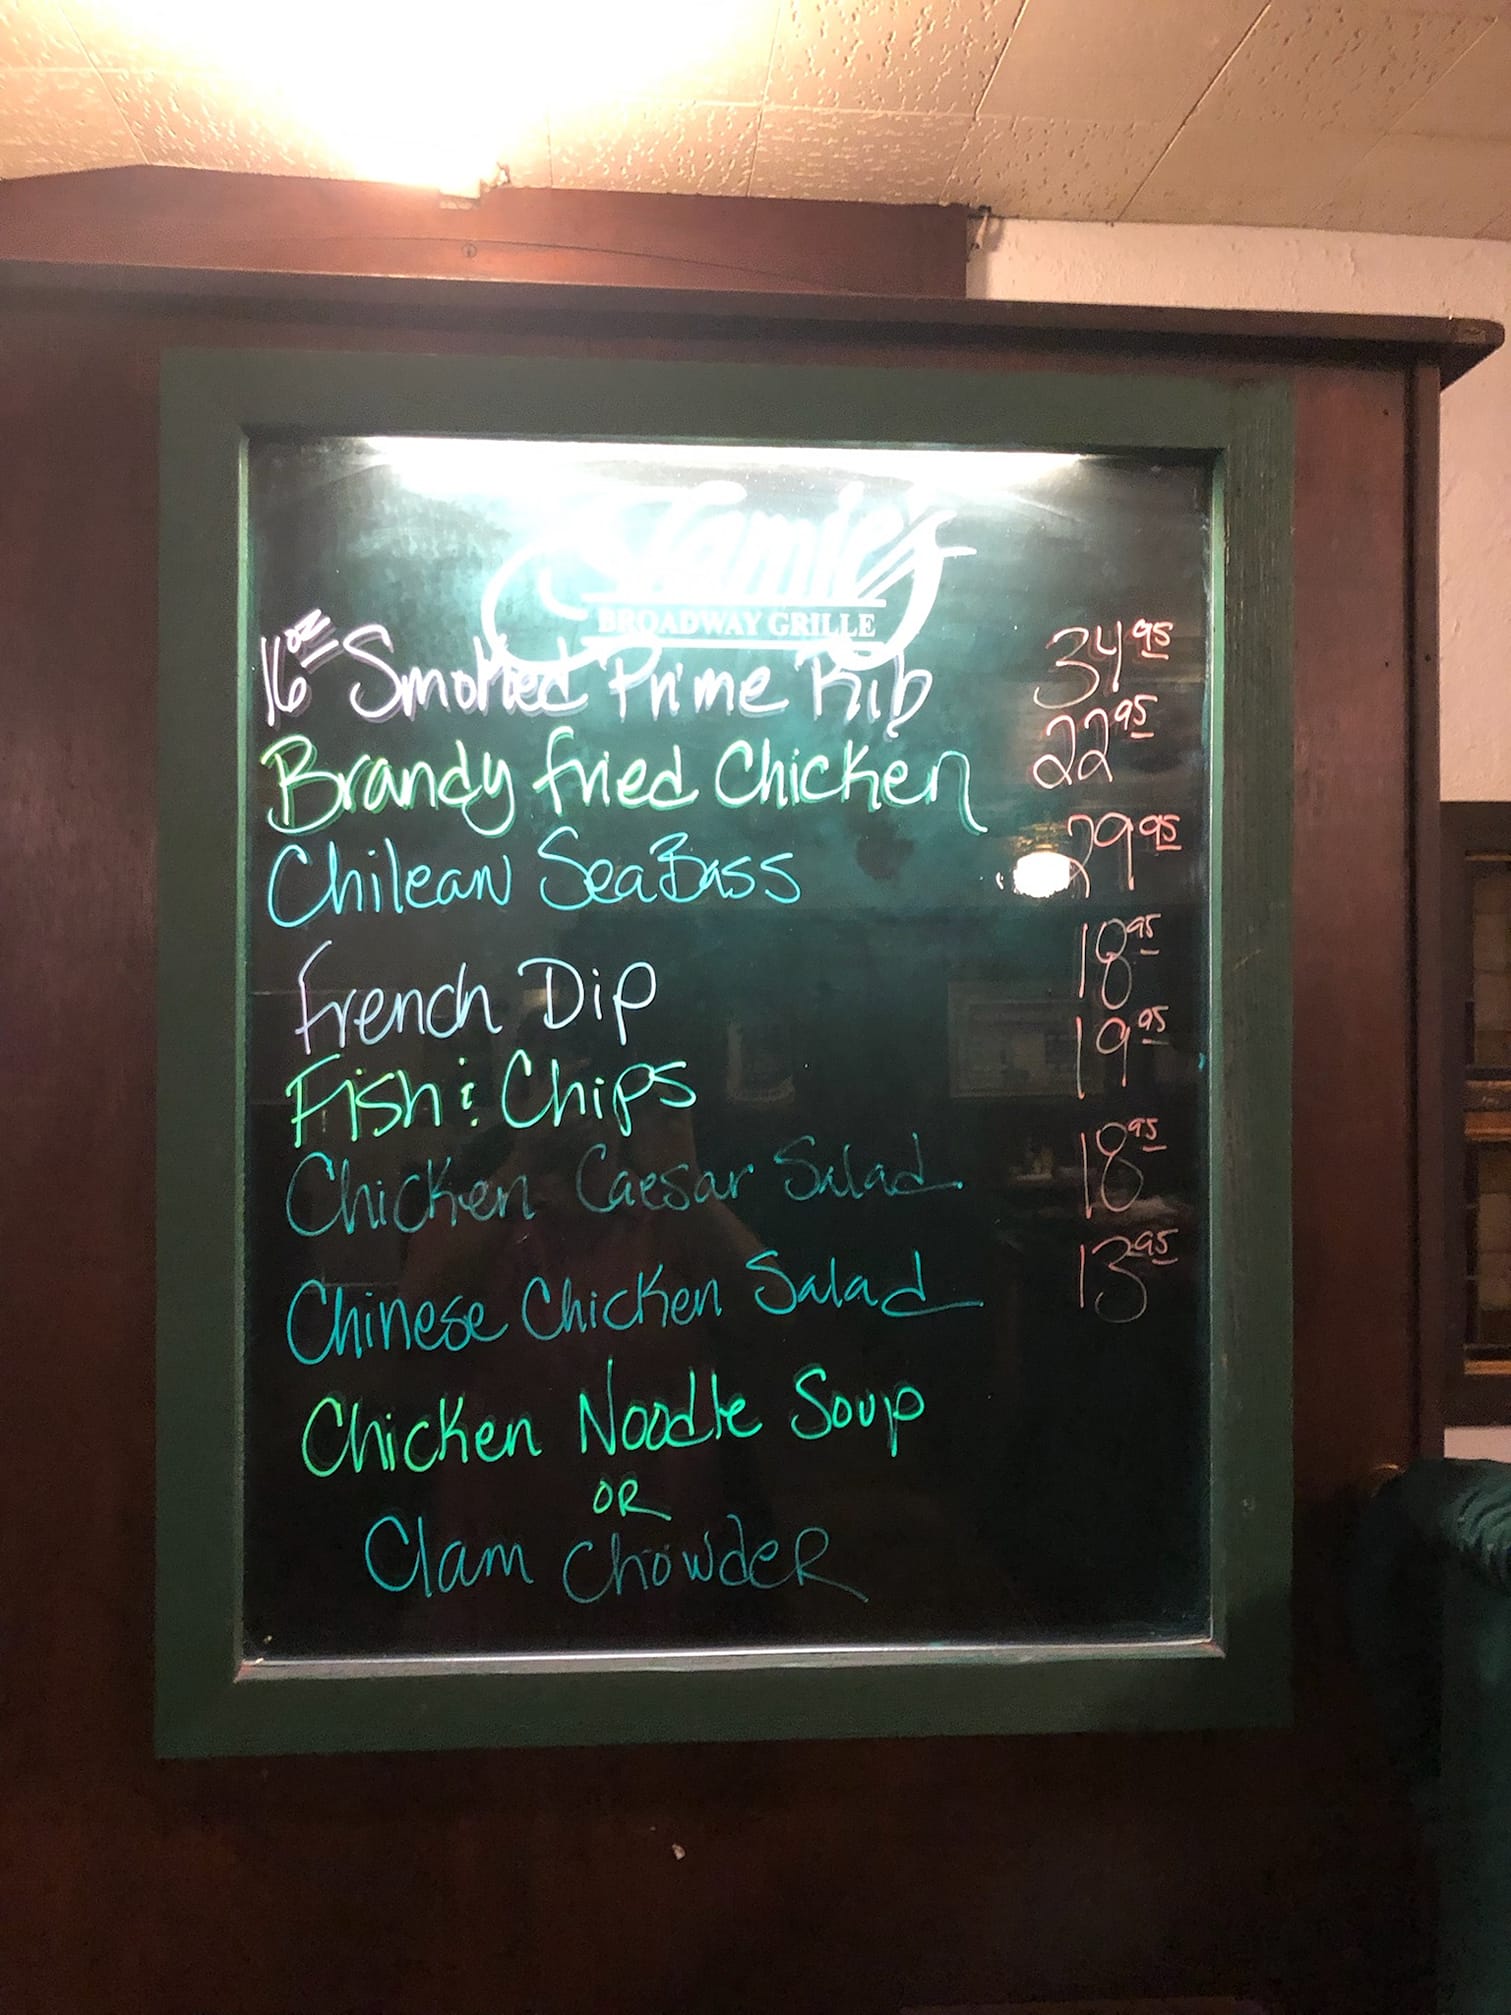 Jamie's
BROADWAY GRILLE
16oz Smoked Prime Rib 34.95
Brandy Fried Chicken 22.95
Chilean SeaBass 29.95
French Dip 18.95
Fish & Chips 19.95
Chicken Caesar Salad 18.95
Chinese Chicken Salad 13.95
Chicken Noodle Soup
OR
Clam Chowder